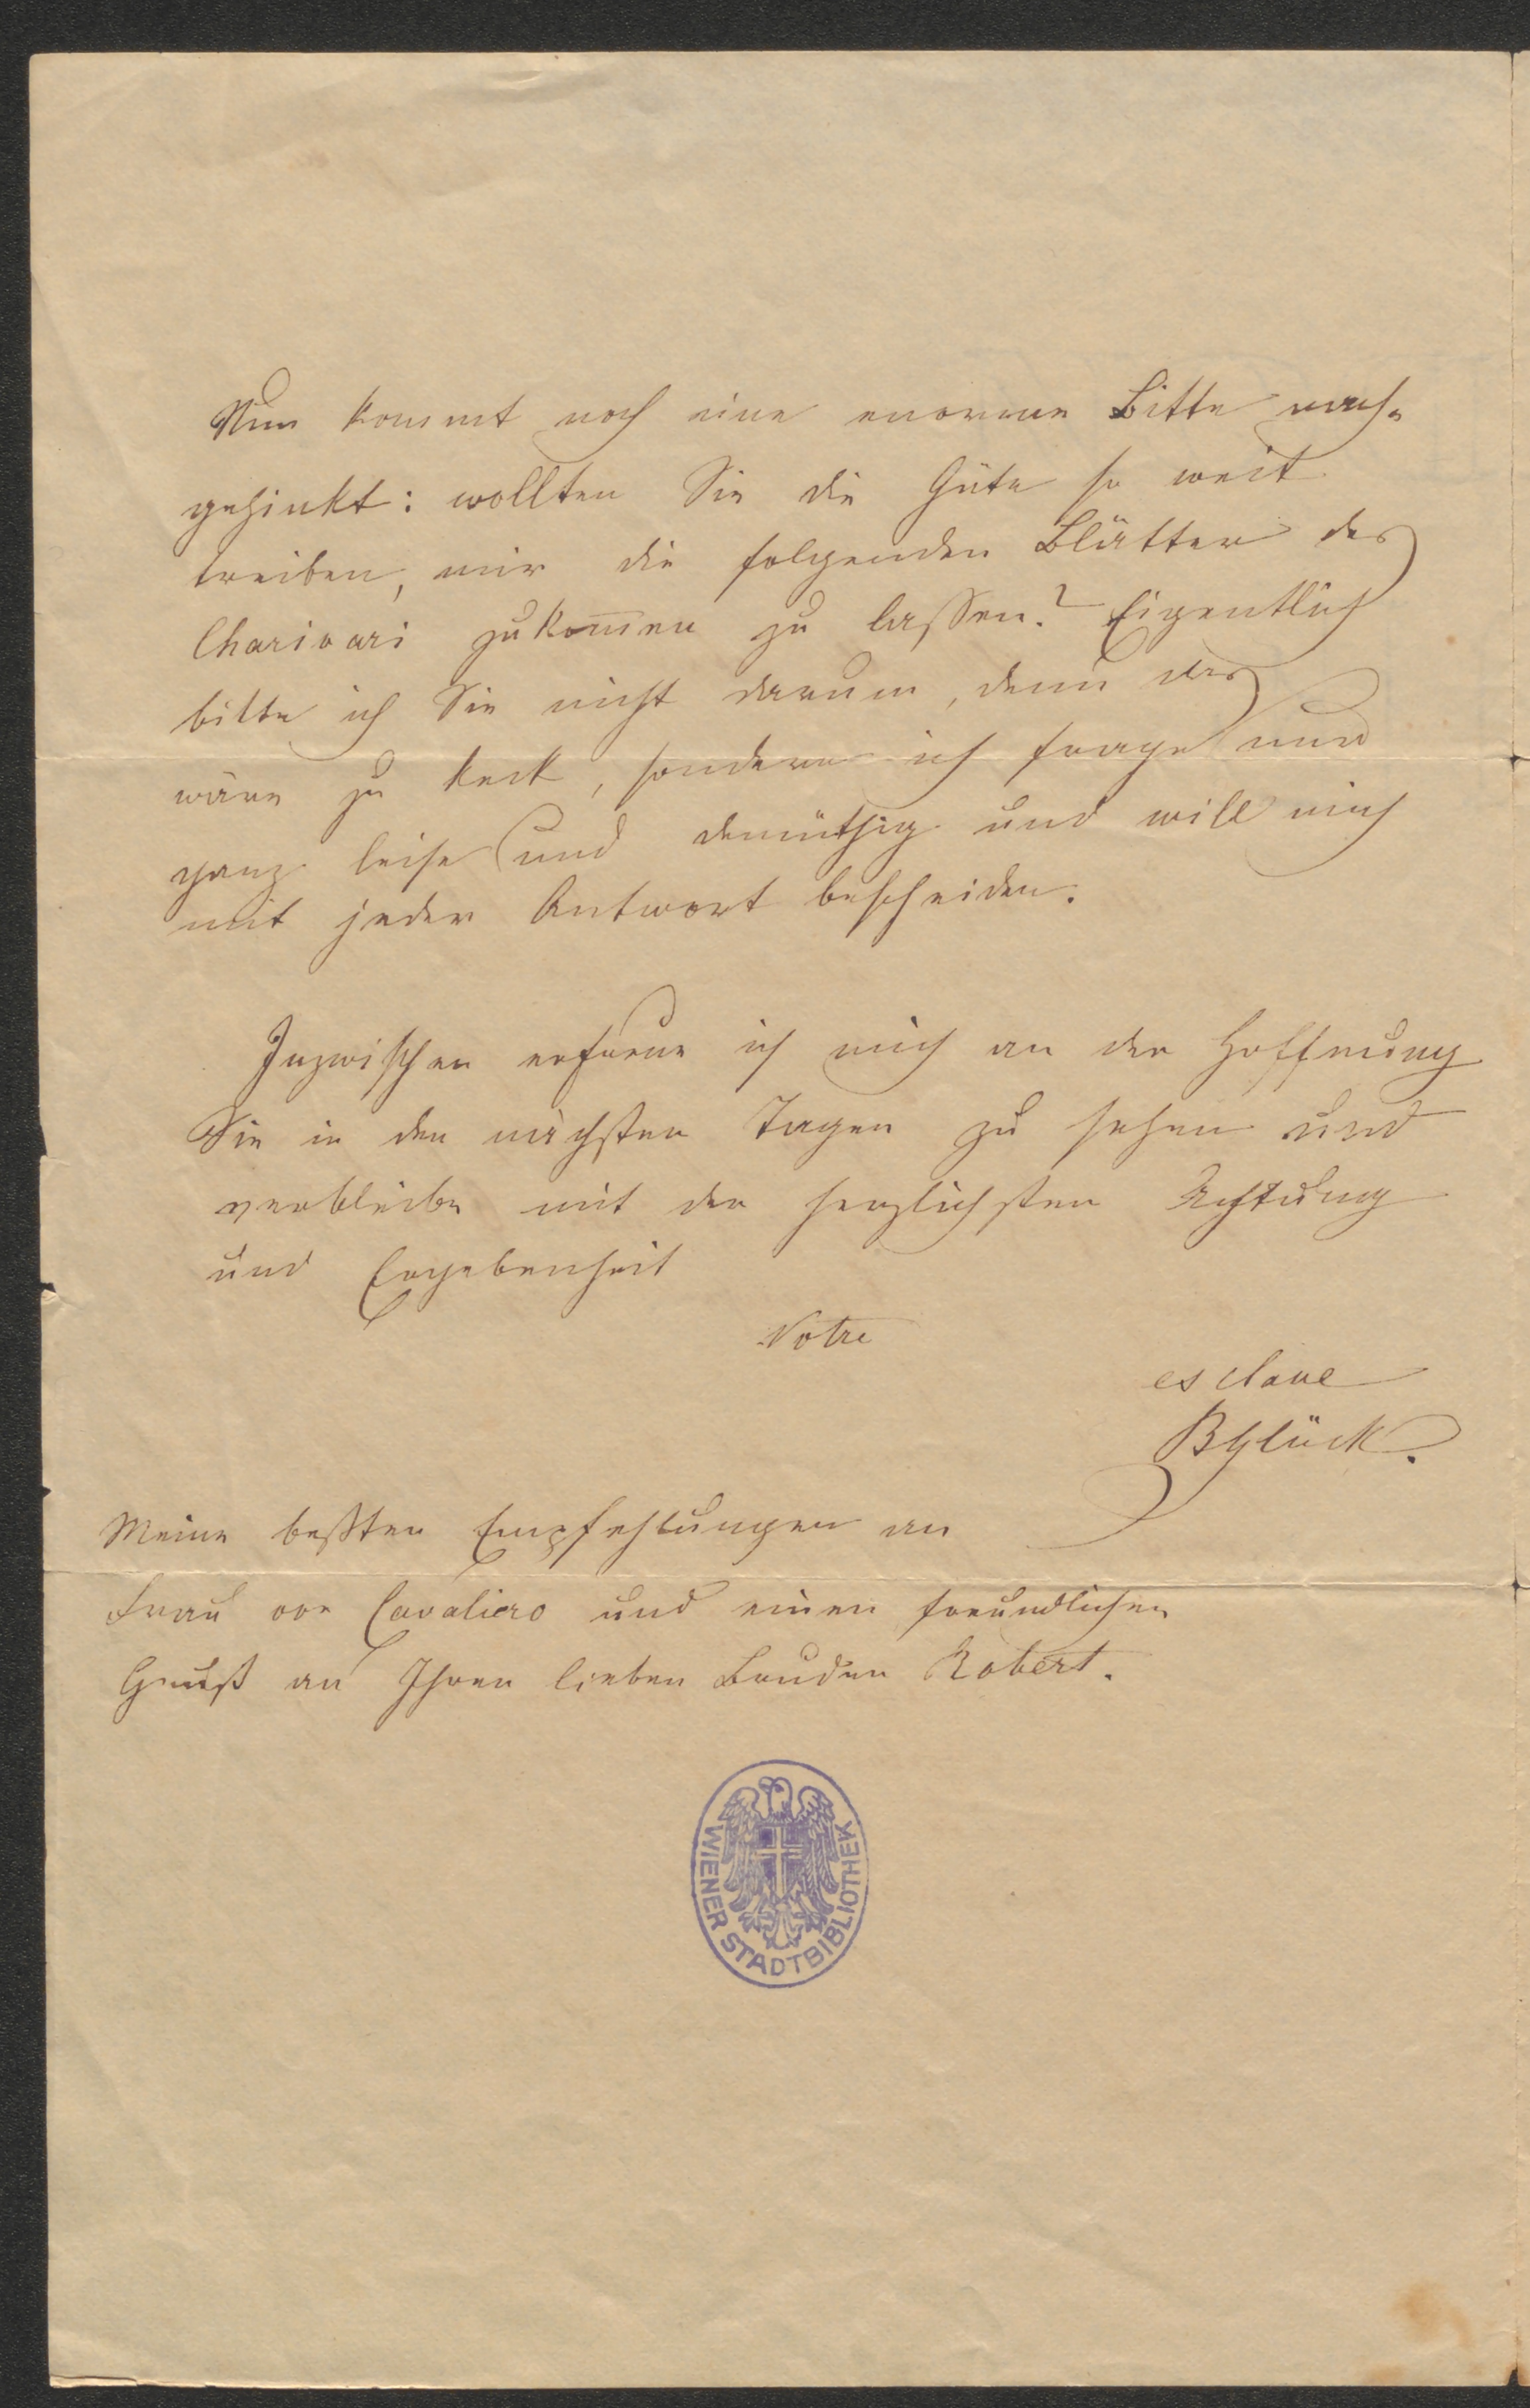 Nun kommt noch eine enorme Bitte nach-
gehinkt: wollten Sie die Güte so weit
treiben, mir die folgenden Blätter des
Charivari zukom̅en zu lassen? Eigentlich
bitte ich Sie nicht darum, denn das
wäre zu keck, sondern ich frage nur
ganz leise und demüthig und will mich
mit jeder Antwort bescheiden.
Inzwischen erfreue ich mich an der Hoffnung
Sie in den nächsten Tagen zu sehen und
verbleibe mit der herzlichsten Achtung
und Ergebenheit
Votre
esclave
BGlück.
Meine beßten Empfehlungen an
Frau von Cavaliero und einen freundlichen
Gruß an Ihren lieben Bruder Robert.
WIENER STADTBIBLIOTHEK